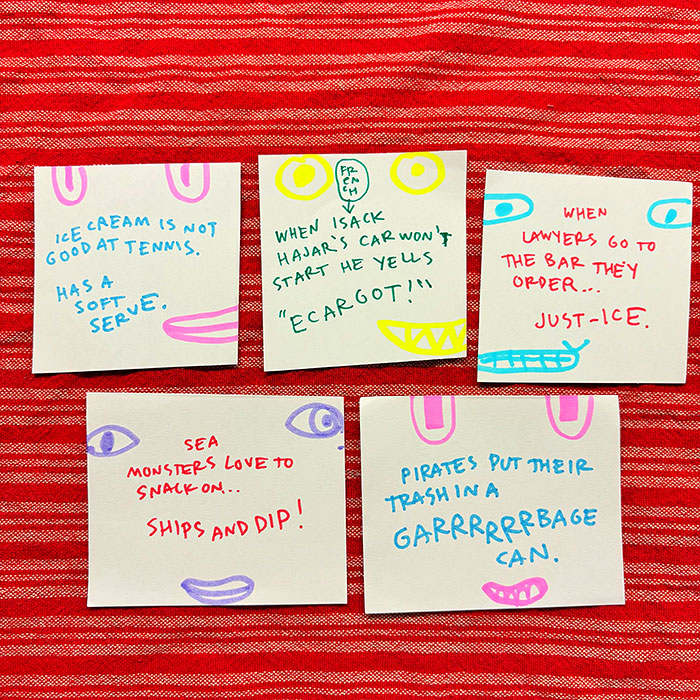 ICE CREAM IS NOT
GOOD AT TENNIS.
HAS A
SOFT
SERVE.
FR
EN
CH
WHEN ISACK
HAJAR'S CAR WON'T
START HE YELLS
"ECARGOT!"
WHEN
LAWYERS GO TO
THE BAR THEY
ORDER...
JUST-ICE.
SEA
MONSTERS LOVE TO
SNACK ON...
SHIPS AND DIP!
PIRATES PUT THEIR
TRASH IN A
GARRRRRRBAGE
CAN.